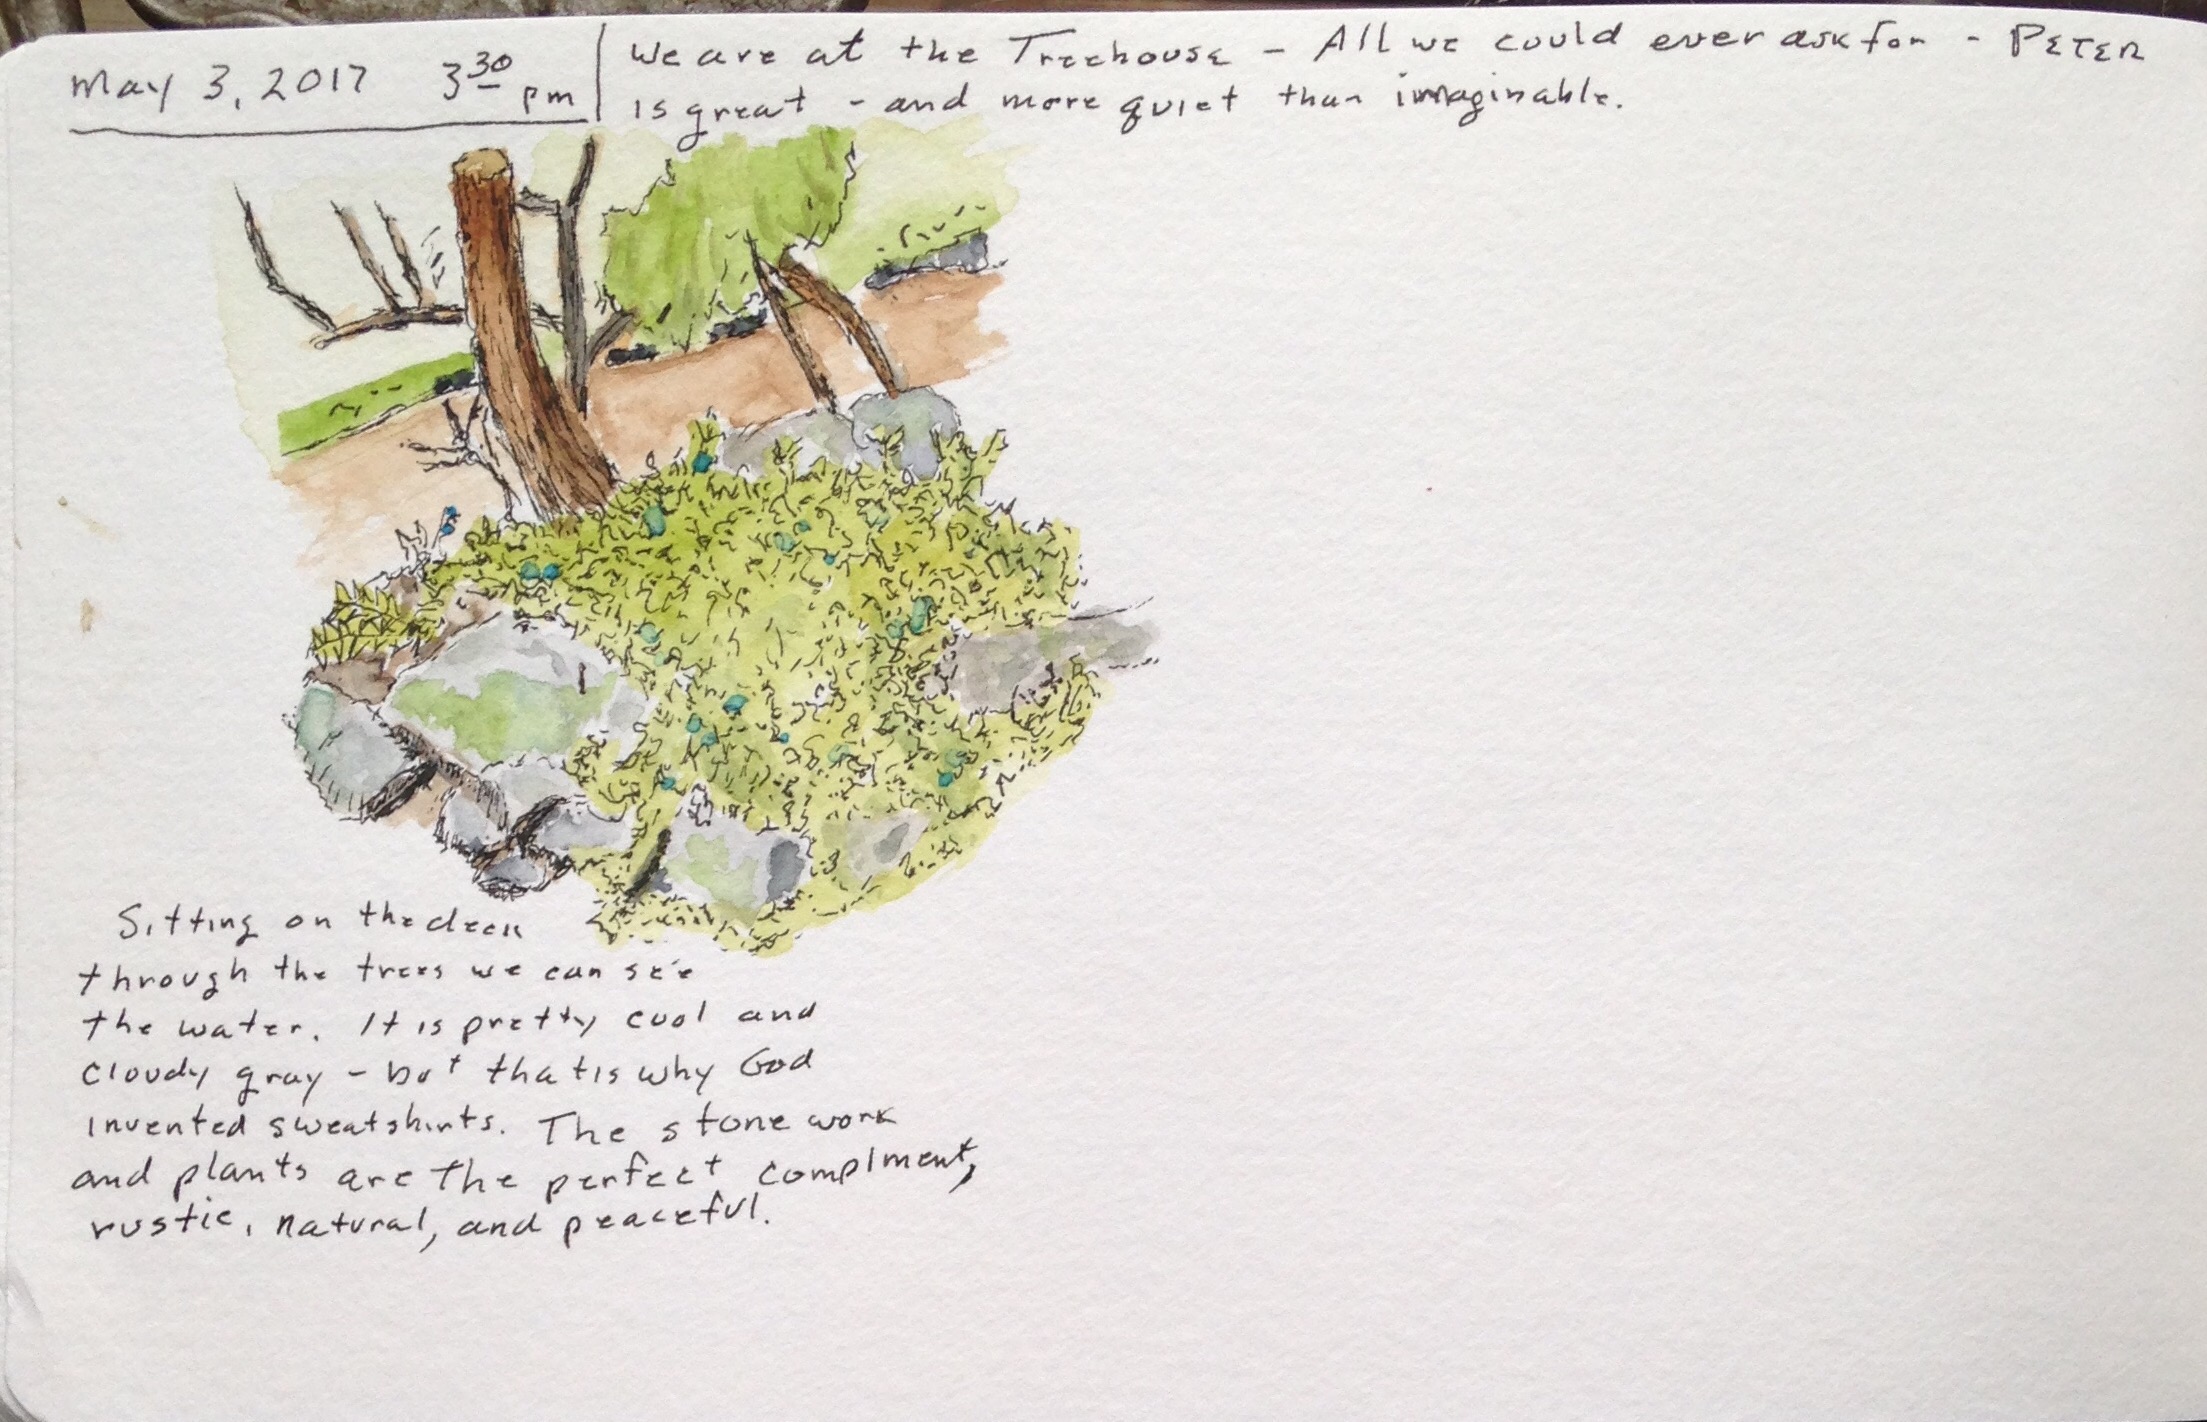 May 3, 2017 3 30 pm
We are at the Treehouse - All we could ever ask for - PETER
is great - and more quiet than imaginable.
Sitting on the deck
through the trees we can see
the water. It is pretty cool and
cloudy gray - but that is why God
invented sweatshirts. The stone work
and plants are the perfect complment,
rustic, natural, and peaceful.